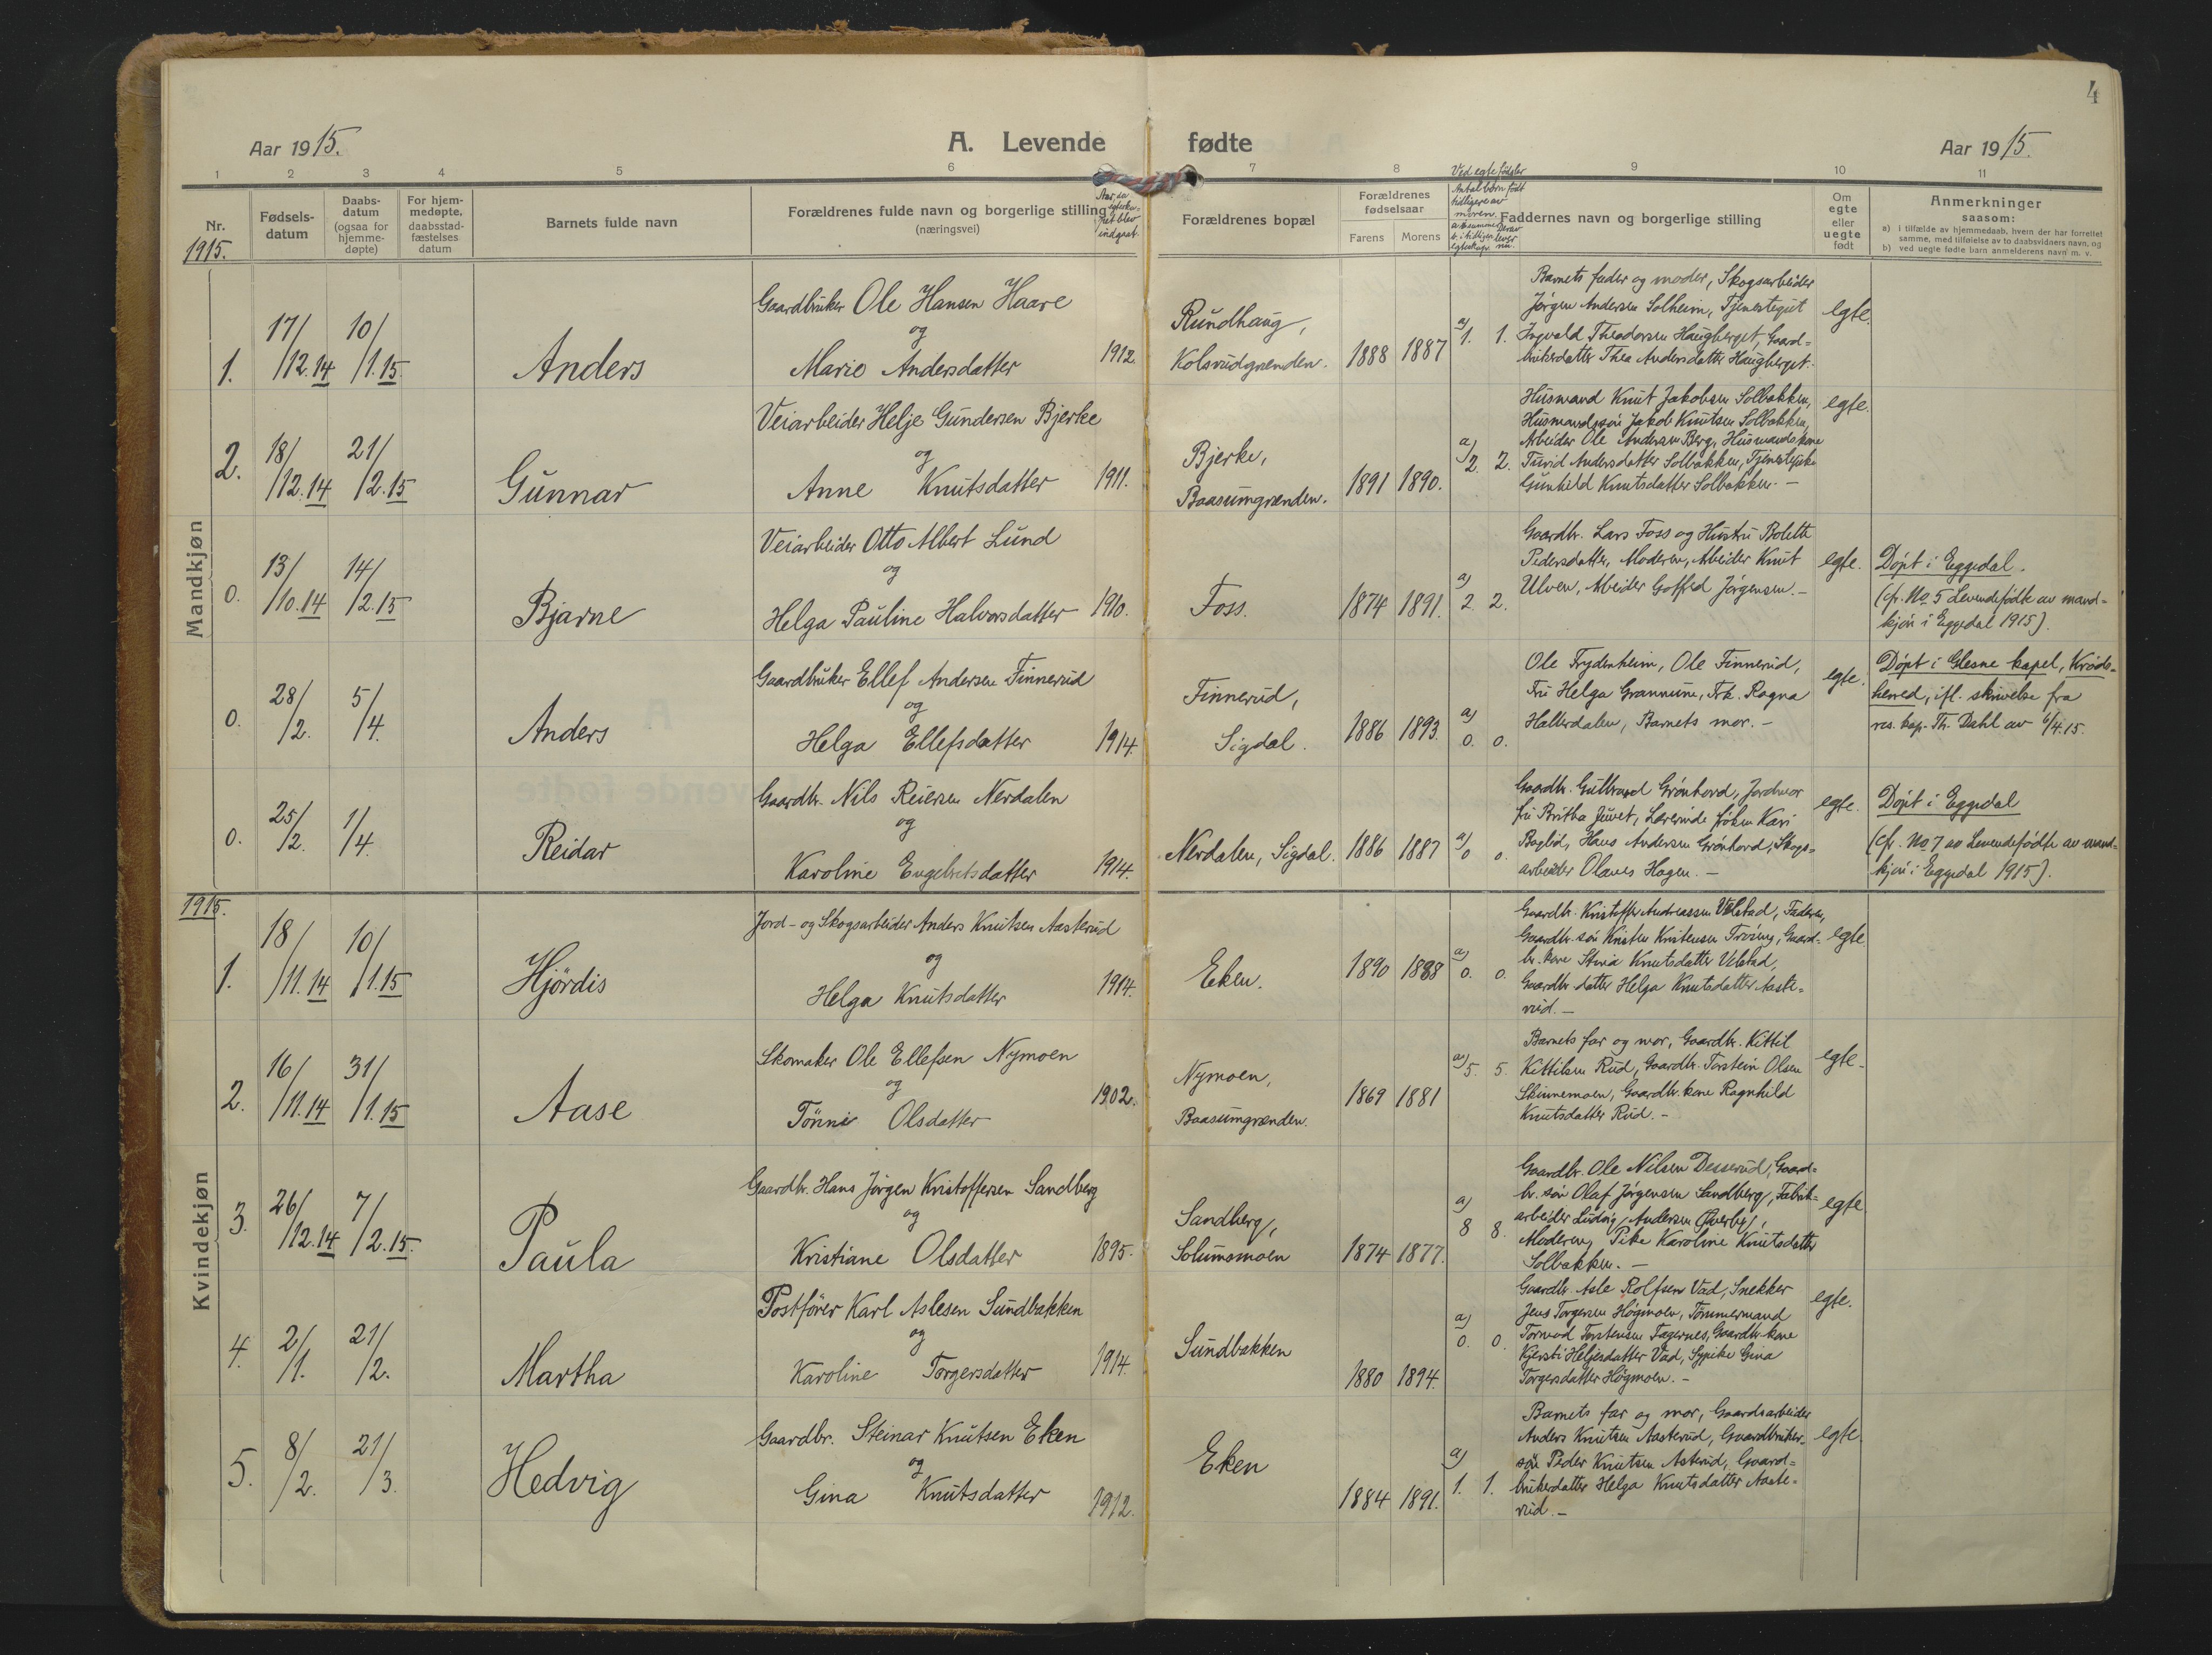 4
Aar 1915.
A. Levende fødte
Aar 1915.
1 2 3 4 5 6 7 8 9 10 11
Nr.
Fødsels-
datum
Daabs-
datum
(ogsaa for
hjemme-
døpte)
For hjem-
medøpte,
daabsstad-
fæstelses
datum
Barnets fulde navn
Forældrenes fulde navn og borgerlige stilling
(næringsvei)
Aar, da
egteska-
pet blev
indgaat.
Forældrenes bopæl
Forældrenes
fødselsaar
Farens Morens
Ved egte fødsler
Antal børn født
tidligere av
moren.
Faddernes navn og borgerlige stilling
Om
egte
eller
uegte
født
Anmerkninger
saasom:
a) i tilfælde av hjemmedaab, hvem der har forrettet
samme, med tilføielse av to daabsvidners navn, og
b) ved uegte fødte barn anmelderens navn m. v.
1915.
Mandkjøn
1. 17/12.14 10/1.15 Anders
Gaardbruker Ole Hansen Haare
og
Marie Andersdatter 1912.
Rundhaug,
Kolsrudgrænden. 1888 1887 a) 1. 1.
Barnets fader og moder, Skogsarbeider
Jørgen Andersen Solheim, Tjenestegut
Ingvald Theodorsen Haugberget, Gaard-
brukerdatter Thea Andersdatter Haugberget.
egte.
2. 18/12.14 21/2.15 Gunnar
Veiarbeider Helje Gundersen Bjerke
og
Anne Knutsdatter 1911.
Bjerke,
Baasumgrænden. 1891 1890. a) 2. 2.
Husmand Knut Jakobsen Solbakken,
Husmandssøn Jakob Knutsen Solbakken,
Arbeider Ole Andersen Berg, Husmandskone
Turid Andersdatter Solbakken, Tjenestepike
Gunhild Knutsdatter Solbakken. –
egte.
0. 13/10.14 14/2.15 Bjarne
Veiarbeider Otto Albert Lund
og
Helga Pauline Halvorsdatter 1910.
Foss. 1874 1891. a) 2. 2.
Gaardbr. Lars Foss og Hustru Bolette
Pedersdatter, Moderen, Arbeider Knut
Ulven, Arbeider Gotfred Jørgensen. –
egte.
Døpt i Eggedal.
(cfr. No 5 Levendefødte av mand-
kjøn i Eggedal 1915).
0. 28/2. 5/4. Anders
Gaardbruker Ellef Andersen Finnerud
og
Helga Ellefsdatter 1914.
Finnerud,
Sigdal. 1886 1893. a) 0. 0.
Ole Frydenheim, Ole Finnerud,
Fru Helga Grannune, Frk. Ragna
Hallerdalen, Barnets mor. –
egte.
Døpt i Glesne kapel, Kröds-
herred, ifl. skrivelse fra
res. kap. Th. Dahl av 6/4.15.
0. 25/2. 1/4. Reidar
Gaardbr. Nils Reiersen Nerdalen
og
Karoline Engebretsdatter 1914.
Nerdalen, Sigdal. 1886 1887 a) 0 0.
Gaardbr. Gulbrand Grønhovd, Jordmor
fru Britha Juvet, Lærerinde frøken Kari
Baglid, Hans Andersen Grønhovd, Skogs-
arbeider Olaves Hagen. –
egte.
Døpt i Eggedal
(cfr. No 7 av Levendefødte av mand-
kjøn i Eggedal 1915).
1915.
Kvindekjøn
1. 18/11.14 10/1.15 Hjørdis
Jord- og Skogsarbeider Anders Knutsen Aasterud
og
Helga Knutsdatter 1914.
Eken. 1890 1888 a) 0. 0.
Gaardbr. Kristoffer Andreassen Velstad, Faderen,
Gaardbr. søn Kristen Kristensen Frøvig, Gaard-
br. kone Stina Knutsdatter Velstad,
Gaardbr. datter Helga Knutsdatter Aaste-
rud. –
egte.
2. 16/11.14 31/1.15 Aase
Skomaker Ole Ellefsen Nymoen
og
Tönne Olsdatter 1902.
Nymoen,
Baasumgrænden. 1869 1881 a) 5. 5.
Barnets far og mor, Gaardbr. Kittil
Kittilsen Rud, Gaardbr. Torstein Olsen
Skinnemoen, Gaardbr. kone Ragnhild
Knutsdatter Rud. –
egte.
3. 26/12.14 7/2.15. Paula
Gaardbr. Hans Jørgen Kristoffersen Sandberg
og
Kristiane Olsdatter 1895.
Sandberg,
Solumsmoen 1874 1877. a) 8 8.
Gaardbr. Ole Nilsen Desserud, Gaard-
br. søn Olaf Jørgensen Sandberg, Fabrik-
arbeider Ludvig Andersen Øverby,
Moderen, Pike Karoline Knutsdatter
Solbakken. –
egte
4. 2/1. 21/2. Martha
Postfører Karl Aslesen Sundbakken
og
Karoline Torgersdatter 1914.
Sundbakken 1880 1894. a) 0. 0.
Gaardbr. Asle Rolfsen Vad, Snekker
Jens Torgersen Høgmoen, Tømmermand
Tormod Torstensen Fagernes, Gaardbr. kone
Kjersti Heljesdatter Vad, Sypike Gina
Torgersdatter Høgmoen. –
egte.
5. 8/2. 21/3. Hedvig
Gaardbr. Steinar Knutsen Eken
og
Gina Knutsdatter 1912.
Eken 1884 1891. a) 1. 1.
Barnets far og mor, Gaardsarbeider
Anders Knutsen Aasterud, Gaardbruker-
søn Peder Knutsen Asterud, Gaard-
brukerdatter Helga Knutsdatter Aaste-
rud. –
egte